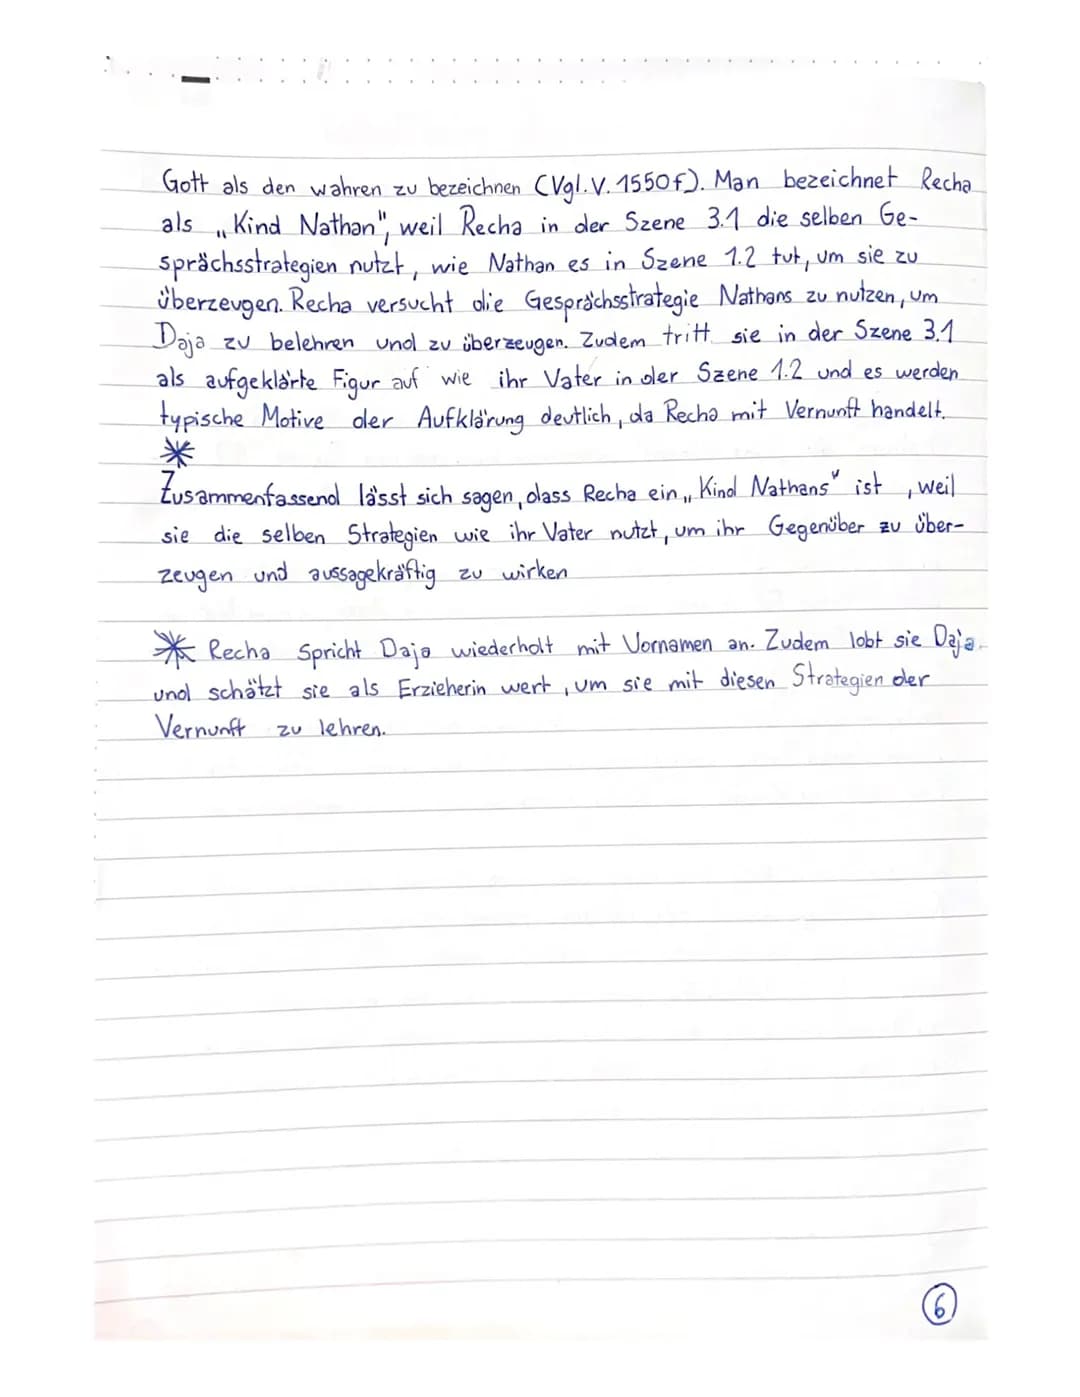 Gott als den wahren zu bezeichnen (Vgl. V. 1550f). Man bezeichnet Recha
als „Kind Nathan", weil Recha in der Szene 3.1 die selben Ge-
sprächsstrategien nutzt, wie Nathan es in Szene 1.2 tut, um sie zu
überzeugen. Recha versucht die Gesprächsstrategie Nathans zu nutzen, um
Daja zu belehren und zu überzeugen. Zudem tritt sie in der Szene 3.1
als aufgeklärte Figur auf wie ihr Vater in der Szene 1.2 und es werden
typische Motive der Aufklärung deutlich, da Recha mit Vernunft handelt.
*
Zusammenfassend lässt sich sagen, dass Recha ein „Kind Nathans" ist, weil
sie die selben Strategien wie ihr Vater nutzt, um ihr Gegenüber zu über-
zeugen und aussagekräftig zu wirken
* Recha Spricht Daja wiederholt mit Vornamen an. Zudem lobt sie Daja
und schätzt sie als Erzieherin wert, um sie mit diesen Strategien der
Vernunft zu lehren.
6